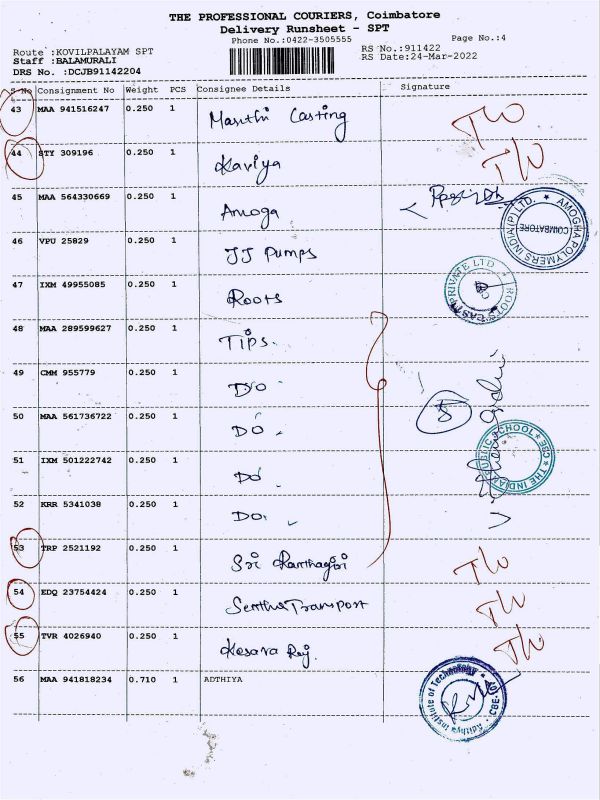 THE PROFESSIONAL COURIERS, Coimbatore
Delivery Runsheet - SPT
Phone No.:0422-3505555
Page No.:4
Route :KOVILPALAYAM SPT
RS No.:911422
Staff :BALAMURALI
RS Date:24-Mar-2022
DRS No. :DCJB91142204
S No Consignment No Weight PCS Consignee Details Signature
43 MAA 941516247 0.250 1 Maruthi Casting T/W
44 STY 309196 0.250 1 Kaviya T/W
45 MAA 564330669 0.250 1 Amoga
AMOGHA POLYMERS INDIA (P) LTD. COIMBATORE
46 VPU 25829 0.250 1 JJ Pumps
47 IXM 49955085 0.250 1 Roots
ROOTS CAST PRIVATE LTD
48 MAA 289599627 0.250 1 TIPS.
49 CMM 955779 0.250 1 DO
50 MAA 561736722 0.250 1 DO
5
51 IXM 501222742 0.250 1 DO
THE INDIAN PUBLIC SCHOOL CBE
52 KRR 5341038 0.250 1 DO
53 TRP 2521192 0.250 1 Sri T/W
54 EDQ 23754424 0.250 1 Senthur Transport T/W
55 TVR 4026940 0.250 1 Kesava Raj. T/W
56 MAA 941818234 0.710 1 ADTHIYA
Adithya Institute of Technology CBE-107